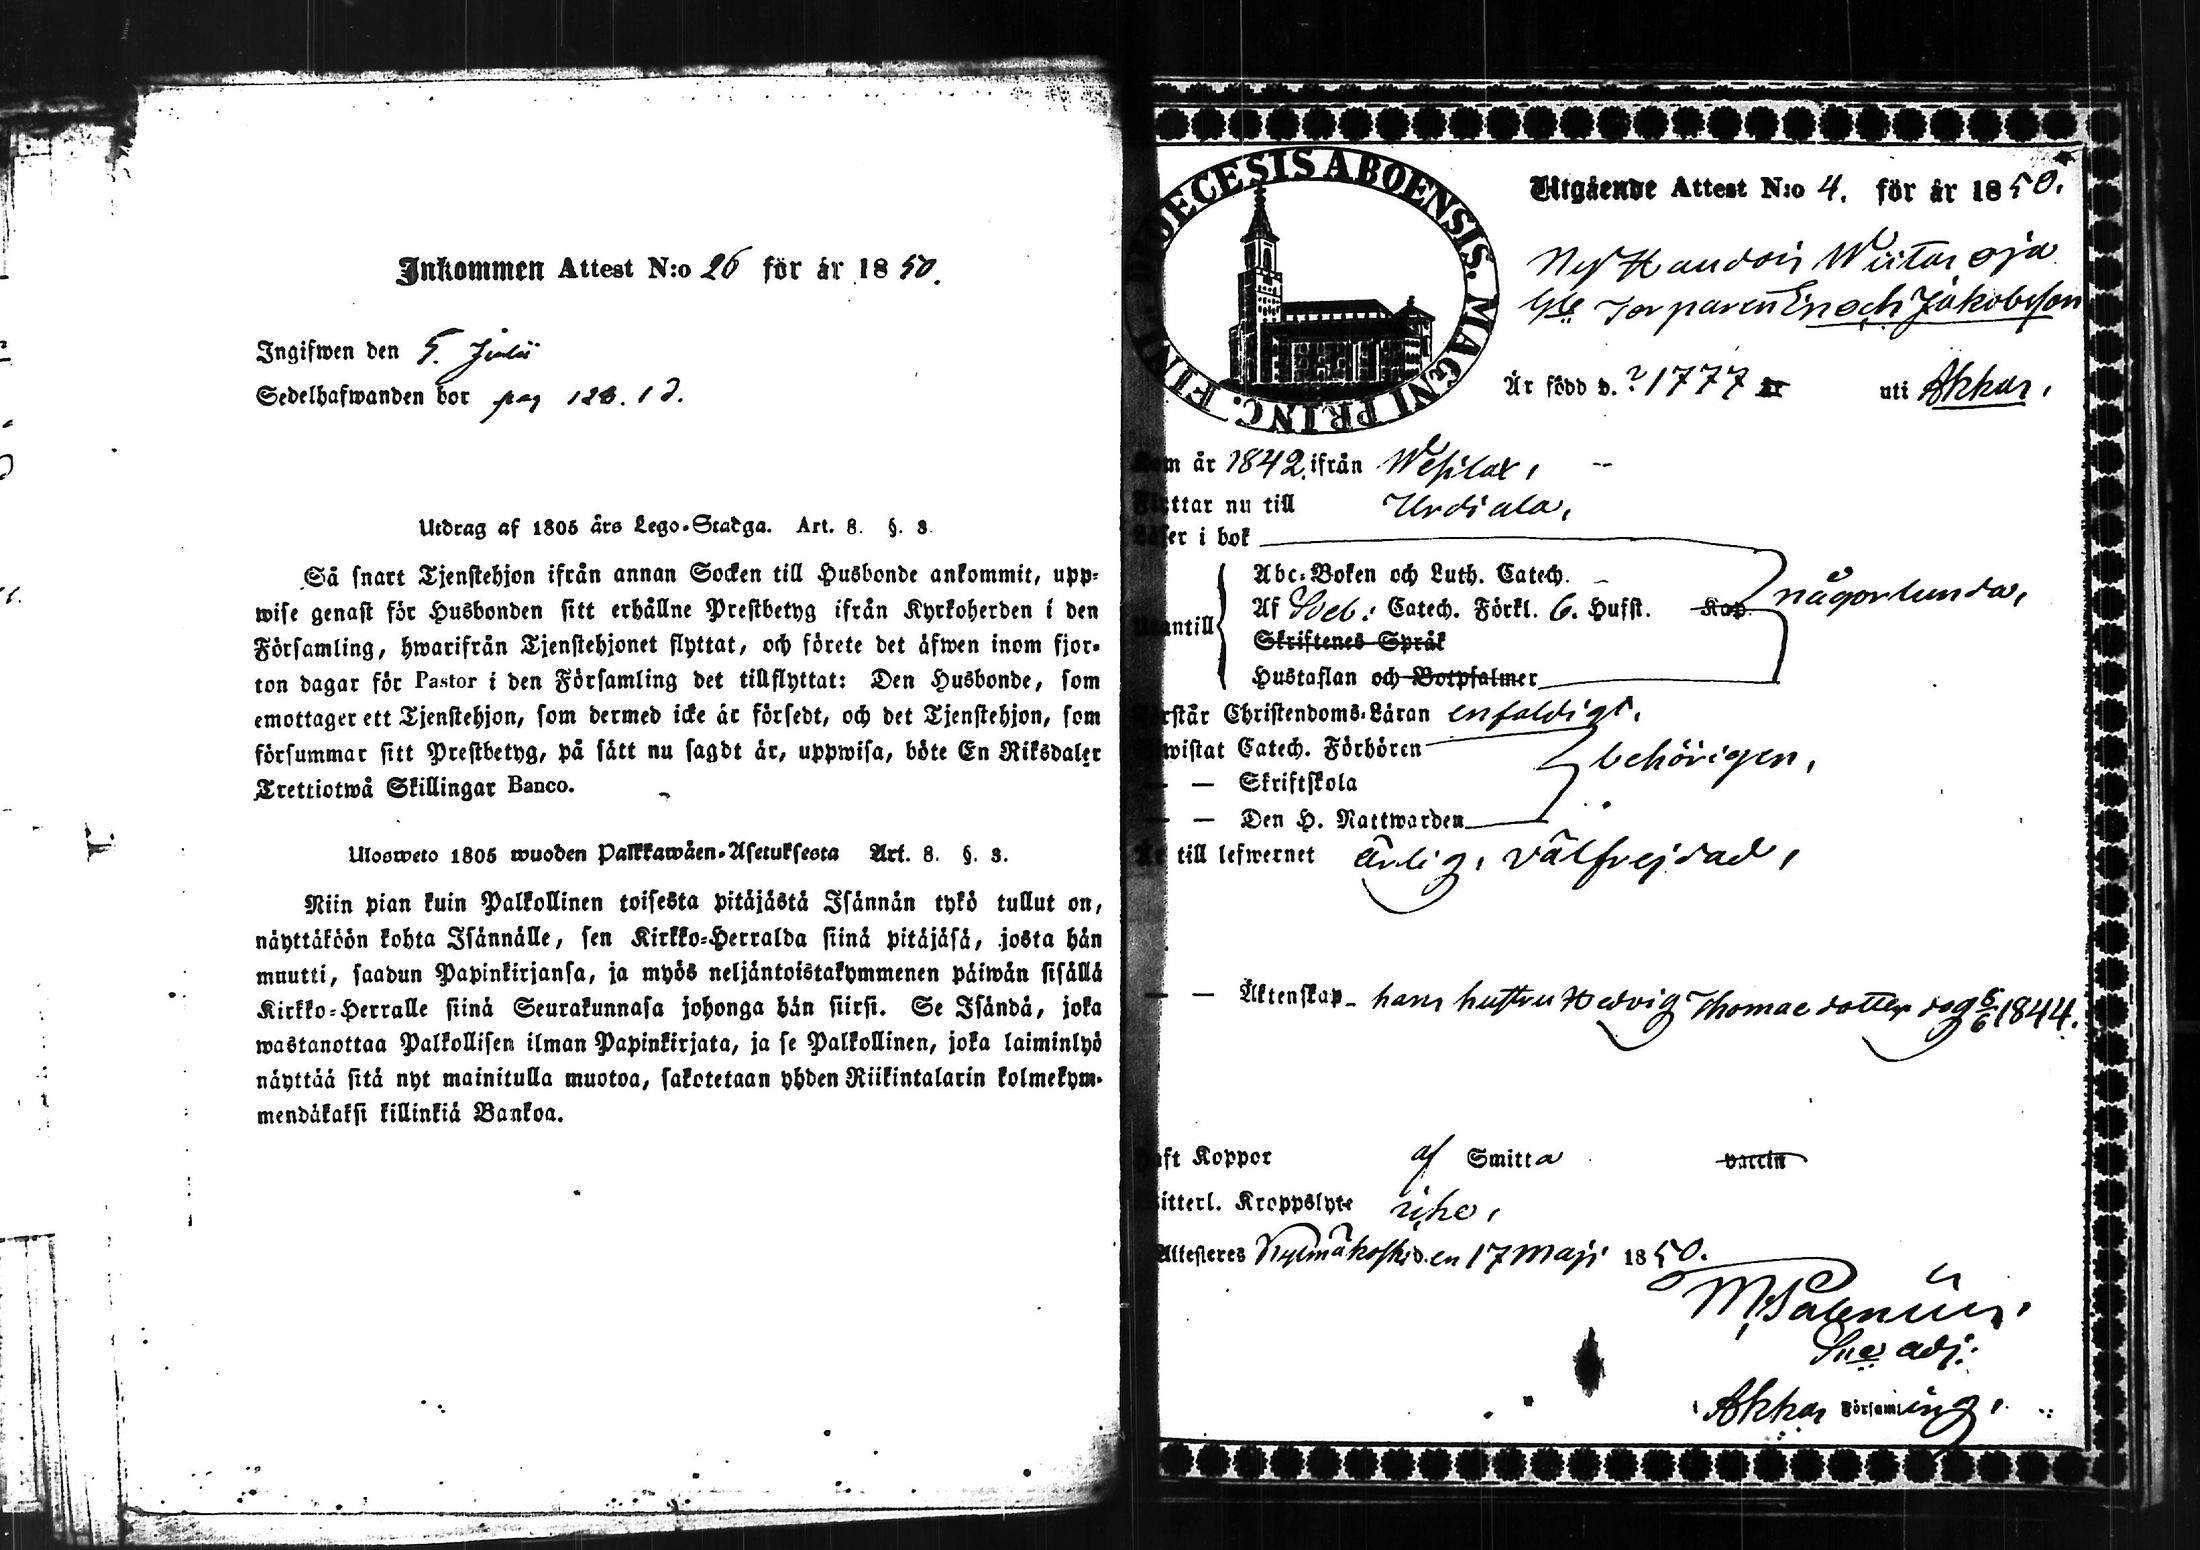 Inkommen Attest N:o 26 för år 1850.
Ingifwen den 5. Julii
Sedelhafwanden bor pag 128. 12.
Utdrag af 1805 års Lego-Stadga. Art. 8. §. 3.
Så snart Tjenstehjon ifrån annan Socken till Husbonde ankommit, upp-
wise genast för Husbonden sitt erhållne Prestbetyg ifrån Kyrkoherden i den
Församling, hwarifrån Tjenstehjonet flyttat, och förete det äfwen inom fjor-
ton dagar för Pastor i den Församling det tillflyttat: Den Husbonde, som
emottager ett Tjenstehjon, som dermed icke är försedt, och det Tjenstehjon, som
försummar sitt Prestbetyg, på sätt nu sagdt är, uppwisa, böte En Riksdaler
Trettiotwå Skillingar Banco.
Ulosweto 1805 wuoden Palkkawäen-Asetuksesta Art. 8. §. 3.
Niin pian kuin Palkollinen toisesta pitäjästä Isännän tykö tullut on,
näyttäköön kohta Isännälle, sen Kirkko-Herralda siinä pitäjäsä, josta hän
muutti, saadun Papinkirjansa, ja myös neljäntoistakymmenen päiwän sisällä
Kirkko-Herralle siinä Seurakunnasa johonga hän siirsi. Se Isändä, joka
wastanottaa Palkollisen ilman Papinkirjata, ja se Palkollinen, joka laiminlyö
näyttää sitä nyt mainitulla muotoa, sakotetaan yhden Riikintalarin kolmekym-
mendäkaksi killinkiä Bankoa.
DIOECESIS ABOENSIS. MAGNI PRINC. FINL.
Utgående Attest N:o 4. för år 1850.
Wiitas oja
Torparen Enoch Jakobsson
Är född d. ? 1777 år uti Akkas,
Kom år 1842. ifrån Wesilax,
Flyttar nu till Urdiala,
Läser i bok
Abc-Boken och Luth. Catech.
någorlunda,
Utantill Af Seb: Catech. Förkl. 6. Hufst. Kap.
Skriftenes Språk
Hustaflan och Botpsalmer
Förstår Christendoms-Läran enfaldigt,
Biwistat Catech. Förhören
behörigen,
— — Skriftskola
— — Den H. Nattwarden
Är till lefwernet ärlig, välfrejdad,
— — Äktenskap hans hustru Hedvig Thomaedotter dog 5/6 1844.
Haft Koppor af Smitta vaccin
Witterl. Kroppslyte icke,
Attesteres Kylmäkoski d.en 17 Maji 1850.
adj:
i Akkas Församling,